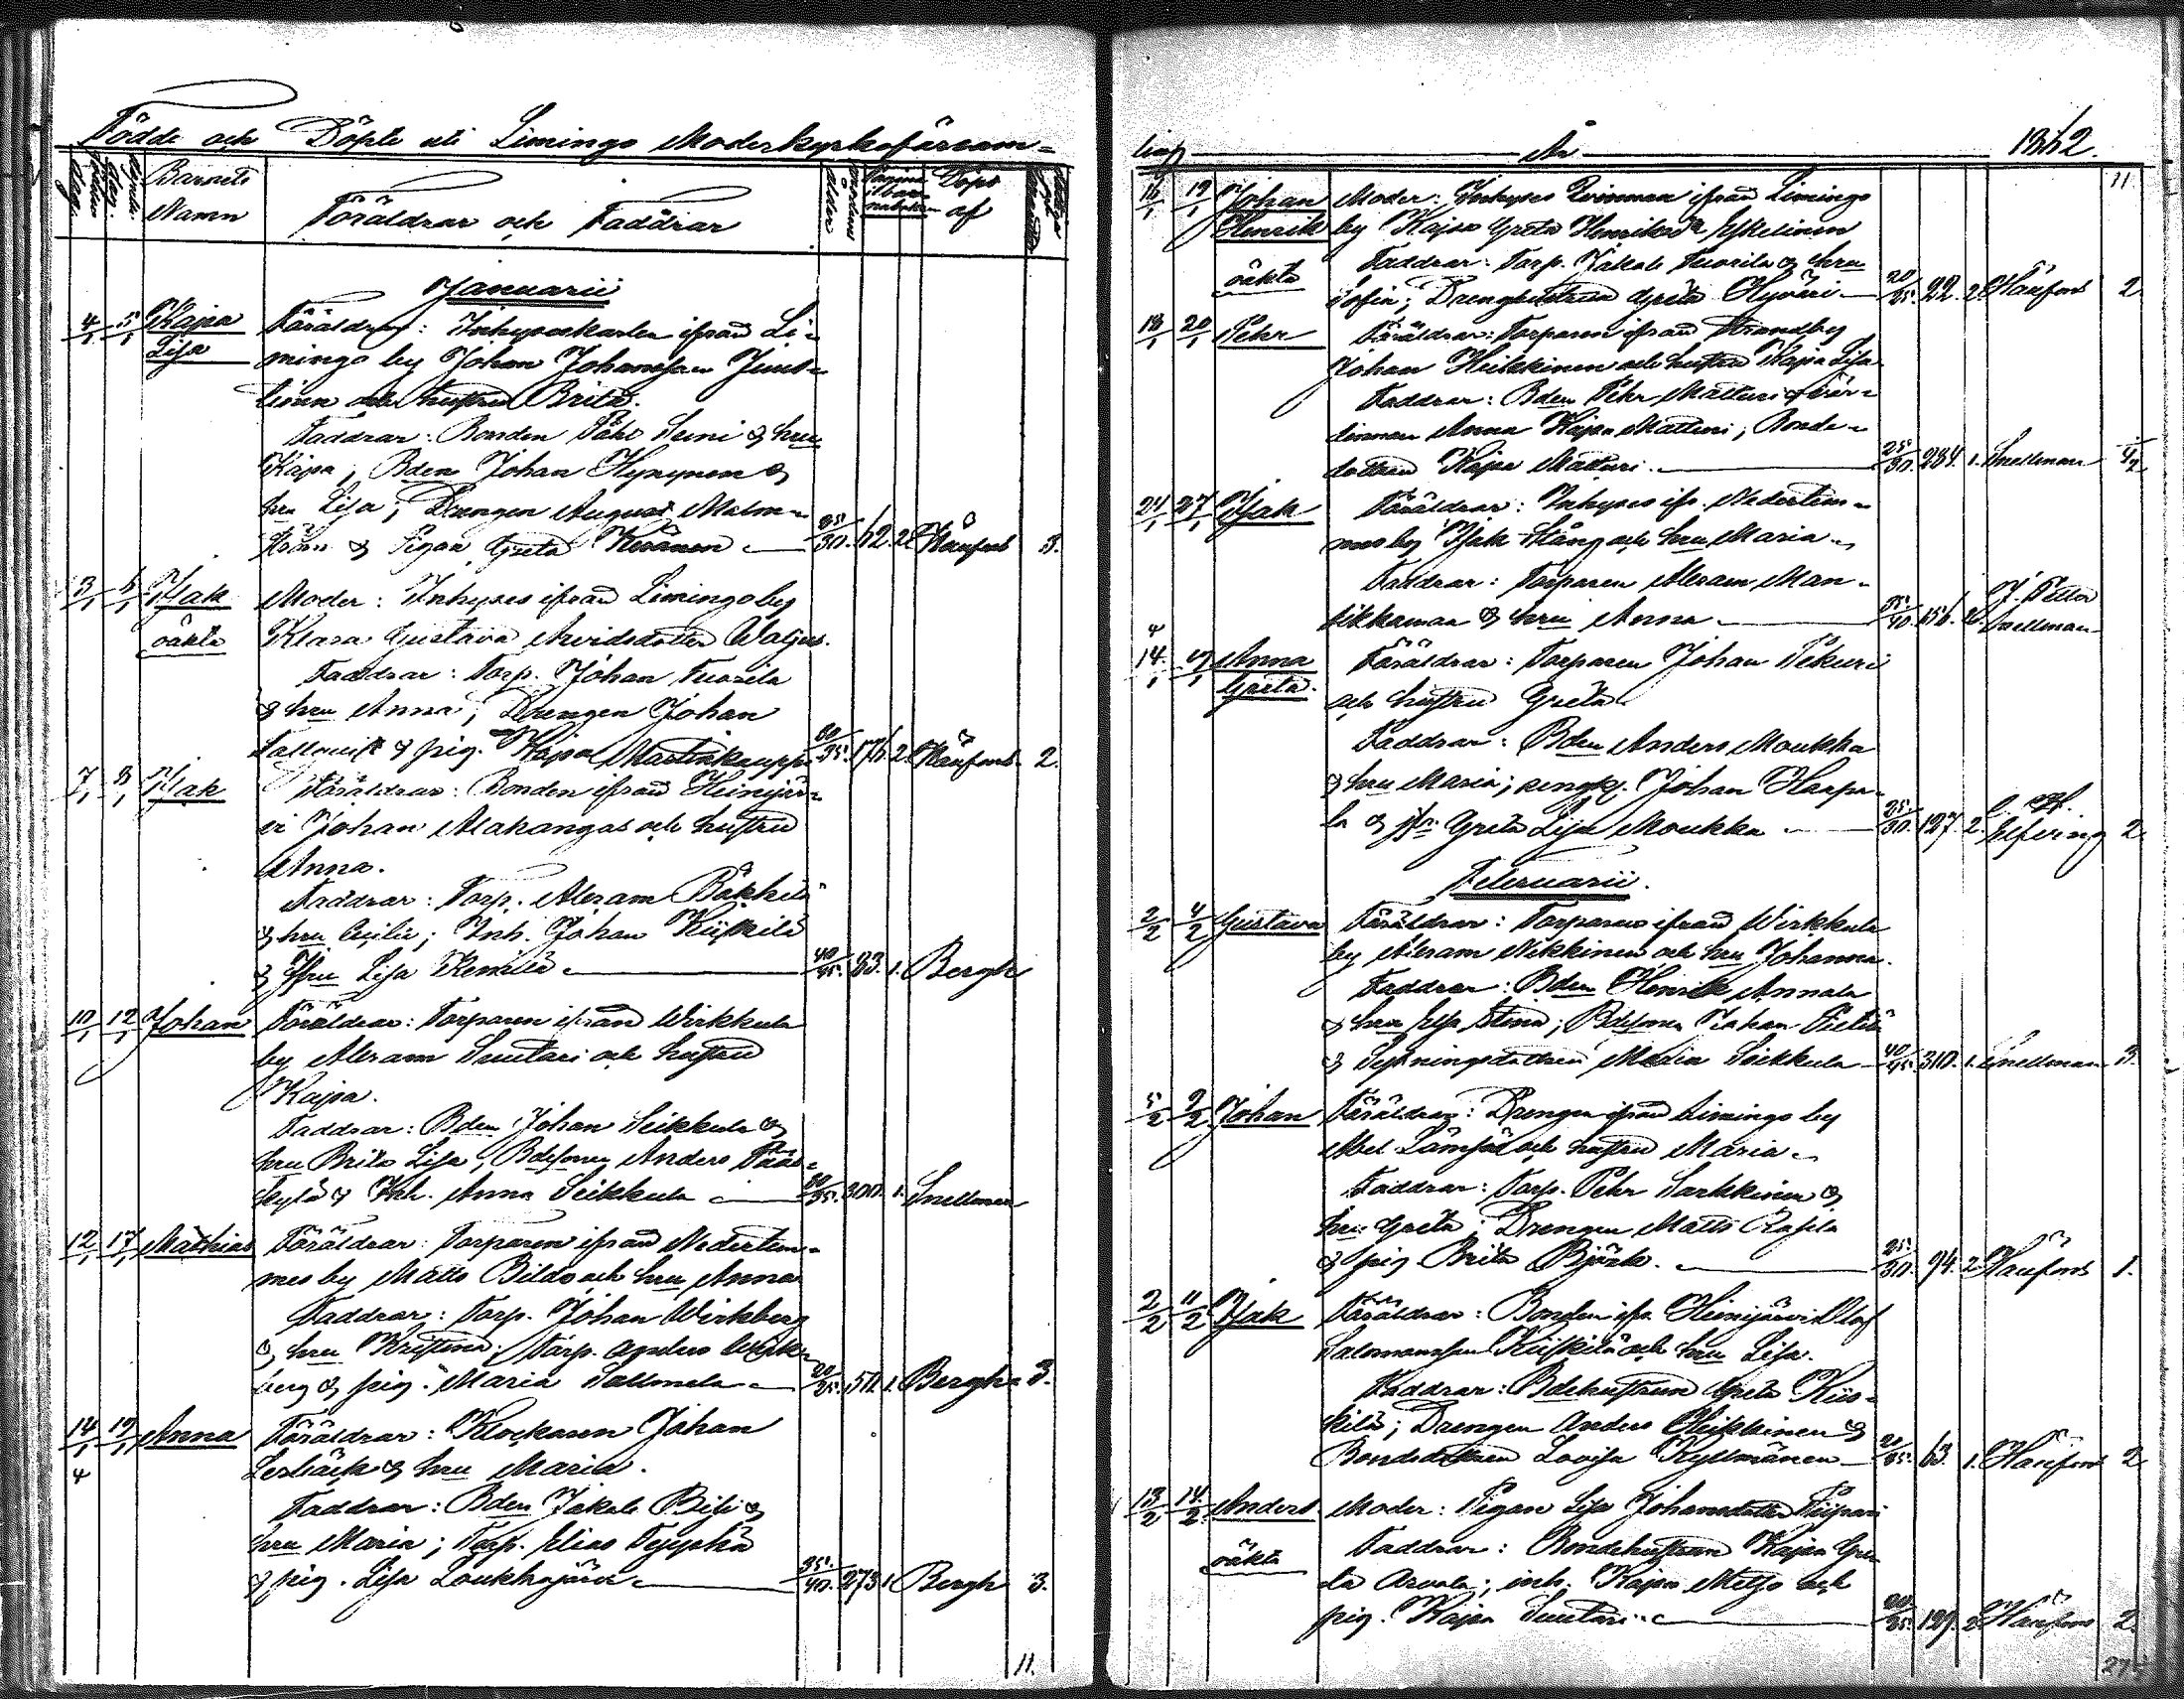 Födde och Döpte uti Limingo Moderkyrkoförsam-
Barnets Namn
Föräldrar och Faddrar
Döpt af
Januarii
4/1 5/1 Kajsa Föräldrar: Inhyseskarlen ifrån Li-
Lisa mingo by Johan Johansson Junt-
tinen och hustru Brita.
Faddrar: Bonden Pehr Seini & hru
Kajsa, Bden Johan Hyrynen &
hru Lisa; Drengen August Malm-
ström & Pigan Greta Keränen 25/30. 62. 2. Kånfors 3.
3/1 6/1 Isak Moder: Inhyses ifrån Limingo by
oäkta Klara Gustava Arvidsdotter Waljus.
Faddrar: Torp. Johan Tuorila
& hru Anna; Drengen Johan
Tallqvist & pig. Kajsa Martinkauppi 30/35. 176. 2. Kånfors 2.
7/1 8/1 Isak Föräldrar: Bonden ifrån Heinijär-
vi Johan Makangas och hustru
Anna.
Faddrar: Torp. Abram Pökkilä
& hru Cecilia; Inh. Johan Kiiskilä
& Jfru Lisa Kemilä 40/45. 83. 1. Bergh
10/1 12/1 Johan Föräldrar: Torparen ifrån Wirkkula
by Abram Suutari och hustru
Kajsa.
Faddrar: Bden Johan Seikkula &
hru Brita Lisa, Bdesonen Anders Pääs-
kylä & Inh. Anna Seikkula 30/35. 300. 1. Snellman
12/1 17/1 Mathias Föräldrar: Torparen ifrån Nedertem-
mes by Matts Bildo och hru Anna
Faddrar: Torp. Johan Wirkberg
& hru Kristina; Torp. Anders Wirk-
berg & pig. Maria Tallmela 20/25. 50. 1. Bergh 3.
14/1 19/1 Anna Föräldrar: Klockaren Johan
4 Lesbäck & hru Maria.
Faddrar: Bden Jakob Bisi &
hru Maria; Torp. Elias Typphä
& pig. Lisa Loukkojärvi 35/40. 273. 1. Bergh 3.
11.
ling År 1862.
11.
16/1 19/1 Johan Moder: Inhyses Qvinnan ifrån Limingo
Henrik by Kajsa Greta Henriksdr Eskelinen
oäkta Faddrar: Torp. Jakob Tuorila & hru
Sofia; Drenghustrun Greta Hyväri 20/25. 22. 2. Kånfors 2.
18/1 20/1 Pehr Föräldrar: Torparen ifrån Strandby
Johan Heikkinen och hustru Kajsa Lisa
Faddrar: Bden Pehr Matturi & vär-
dinnan Anna Kajsa Matturi; Bonde-
dottren Kajsa Matturi 25/30. 284. 1. Snellman
24/1 27/1 Isak Föräldrar: Inhyses ifr. Nedertem-
mes by Isak Stång och hru Maria
Faddrar: Torparen Abram Man-
tikkamaa & hru Anna 35/40. 156. 2. J. Petter Snellman
14/1 Anna Föräldrar: Torparen Johan Pekuri
Greta. och hustru Greta
Faddrar: Bden Anders Moukka
& hru Maria; rengk. Johan Harpa-
la & jfr. Greta Lisa Moukka 25/30. 127. 2. Elfving 2.
Februarii.
2/2 4/2 Gustava Föräldrar: Torparen ifrån Wirkkula
by Abram Nikkinen och hru Johanna.
Faddrar: Bden Henrik Annala
& hru Elsa Stina; Bdesonen Johan Pietilä
& Sytningsdottren Maria Seikkula 40/45. 310. 1. Snellman 3.
5/2 9/2 Johan Föräldrar: Drengen ifrån Limingo by
Abel Lämsä och hustru Maria
Faddrar: Torp. Pehr Sarkkinen &
hru Greta; Drengen Matts Rafila
& pig. Brita Björk. 25/30. 94. 2. Kånfors 1.
2/2 11/2 Isak Föräldrar: Bonden ifr. Heinijärvi Olof
Salomonsson Kiiskilä och hru Lisa.
Faddrar: Bdehustrun Greta Kiis-
kilä; Drengen Anders Heikkinen &
Bondedottren Lovisa Kyllmänen 20/25. 63. 1. Kånfors 2
13/2 14/2 Anders Moder: Pigan Lisa Johansdotter Piipari
oäkta Faddrar: Bondehustrun Kajsa Gre-
ta Arvola; inh. Kajsa Metso och
pig. Kajsa Suutari 20/25. 129. 2. Kånfors 2.
27